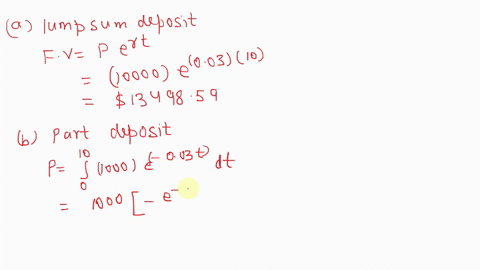 (a) lumpsum deposit
F.V = P e^{rt}
= (10000) e^{(0.03)(10)}
= $13498.59
(b) Part deposit
P = ∫_0^{10} (1000) e^{(-0.03t)} dt
= 1000 [ - e^{-